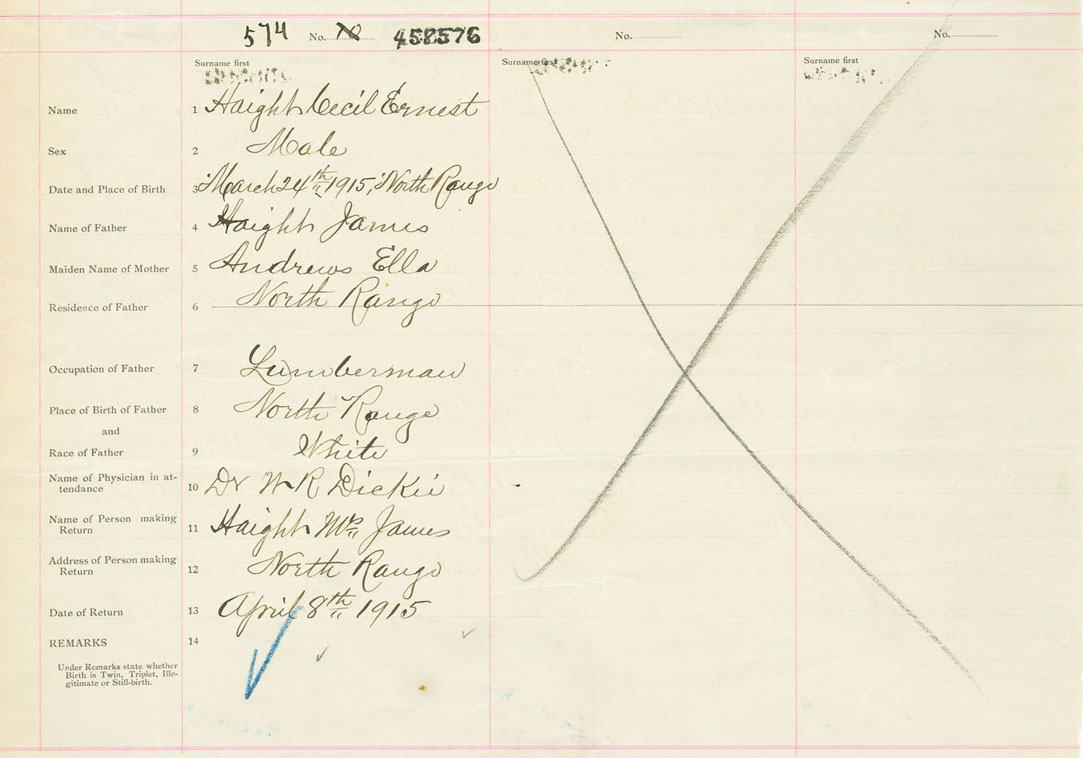 574 No. 458576 No. No.
Surname first Surname first Surname first
Name 1 Haight Cecil Ernest
Sex 2 Male
Date and Place of Birth 3 March 24th 1915, North Range
Name of Father 4 Haight James
Maiden Name of Mother 5 Andrews Ella
Residence of Father 6 North Range
Occupation of Father 7 Lumberman
Place of Birth of Father 8 North Range
and
Race of Father 9 White
Name of Physician in at-
tendance 10 Dr W R Dickie
Name of Person making
Return 11 Haight Mrs James
Address of Person making
Return 12 North Range
Date of Return 13 April 8th 1915
REMARKS 14
Under Remarks state whether
Birth is Twin, Triplet, Ille-
gitimate or Still-birth.